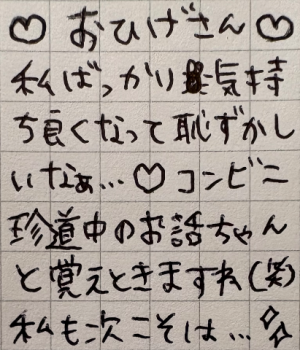 ♡おひげさん♡
私ばっかり気持
ち良くなって恥ずかし
いなぁ…♡コンビニ
珍道中のお話ちゃん
と覚えときますね(笑)
私も次こそは…✧✧